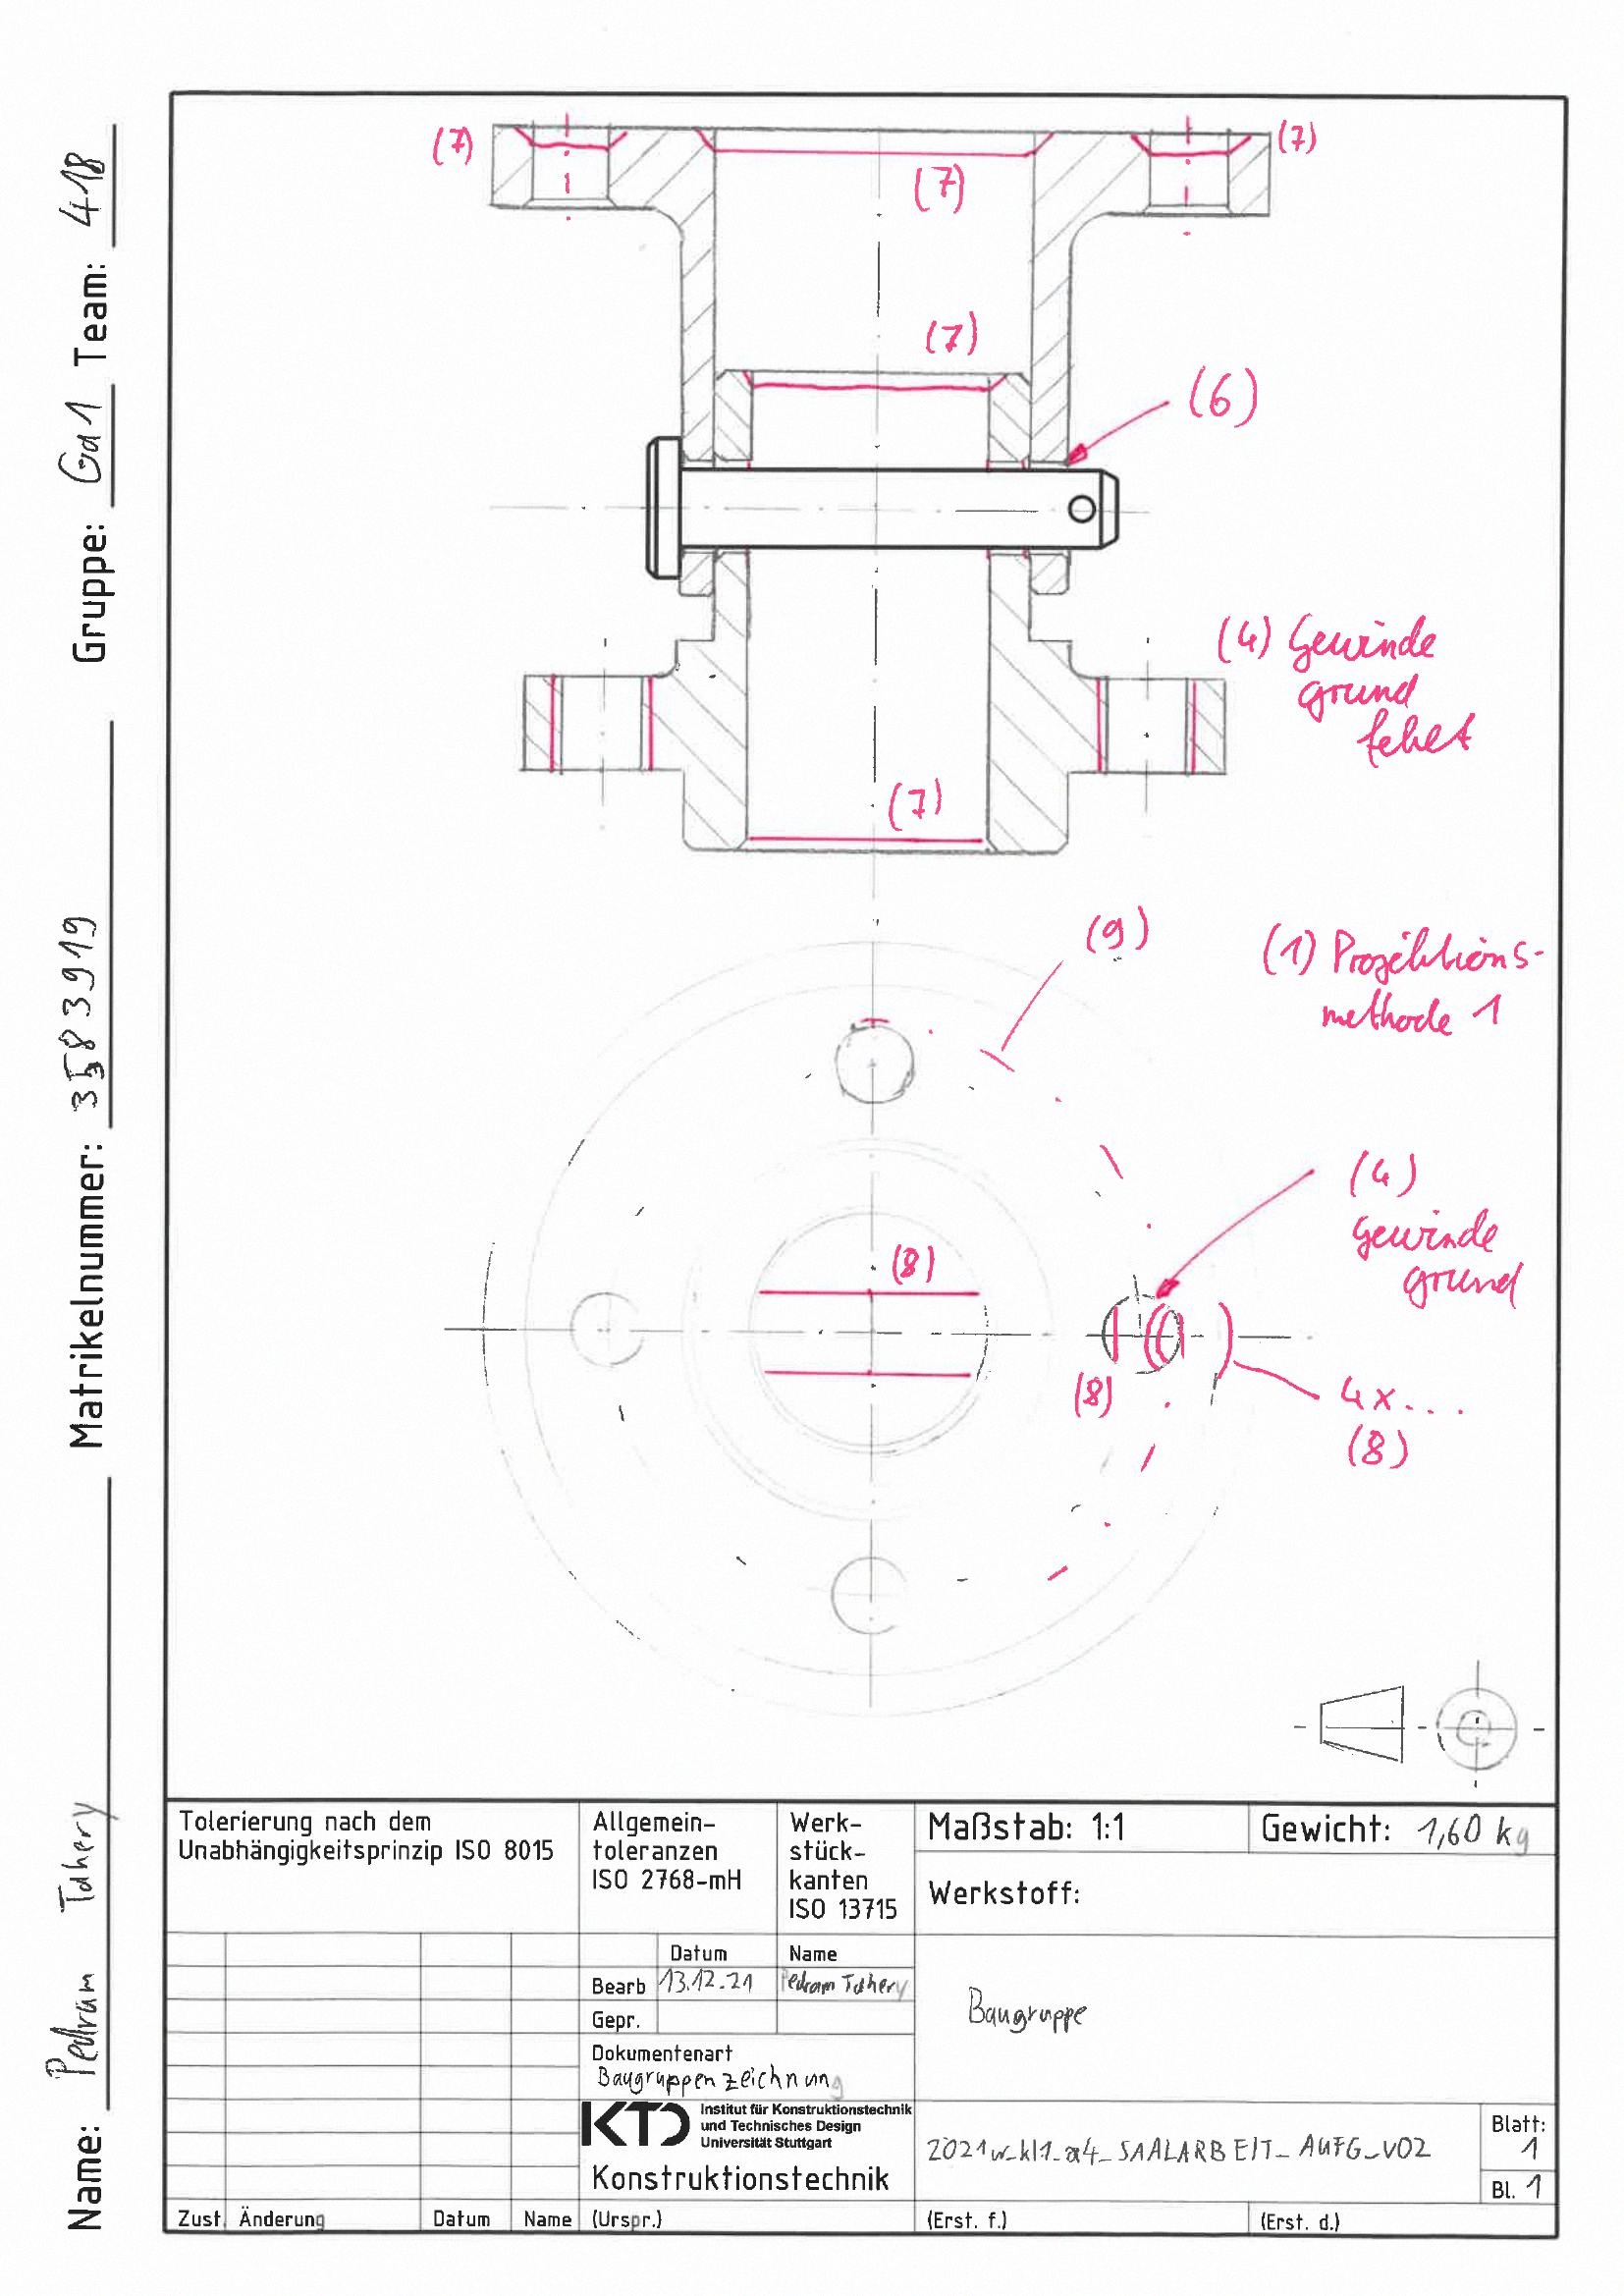 Name: Pedram Tahery Matrikelnummer: 3583919 Gruppe: Ga1 Team: 418
(7)
(7)
(7)
(7)
(6)
(4) Gewinde
grund
fehlt
(7)
(9)
(1) Projektions-
methode 1
(4)
Gewinde
grund
(8)
(8)
4x...
(8)
Tolerierung nach dem
Unabhängigkeitsprinzip ISO 8015
Allgemein-
toleranzen
ISO 2768-mH
Werk-
stück-
kanten
ISO 13715
Maßstab: 1:1
Gewicht: 1,60 kg
Werkstoff:
Datum Name
Bearb 13.12.21 Pedram Tahery
Gepr.
Dokumentenart
Baugruppenzeichnung
Baugruppe
KTD
Institut für Konstruktionstechnik
und Technisches Design
Universität Stuttgart
Konstruktionstechnik
2021w_kl1_a4_SAALARBEIT_AUFG_V02
Blatt:
1
Bl. 1
Zust. Änderung Datum Name (Urspr.) (Erst. f.) (Erst. d.)